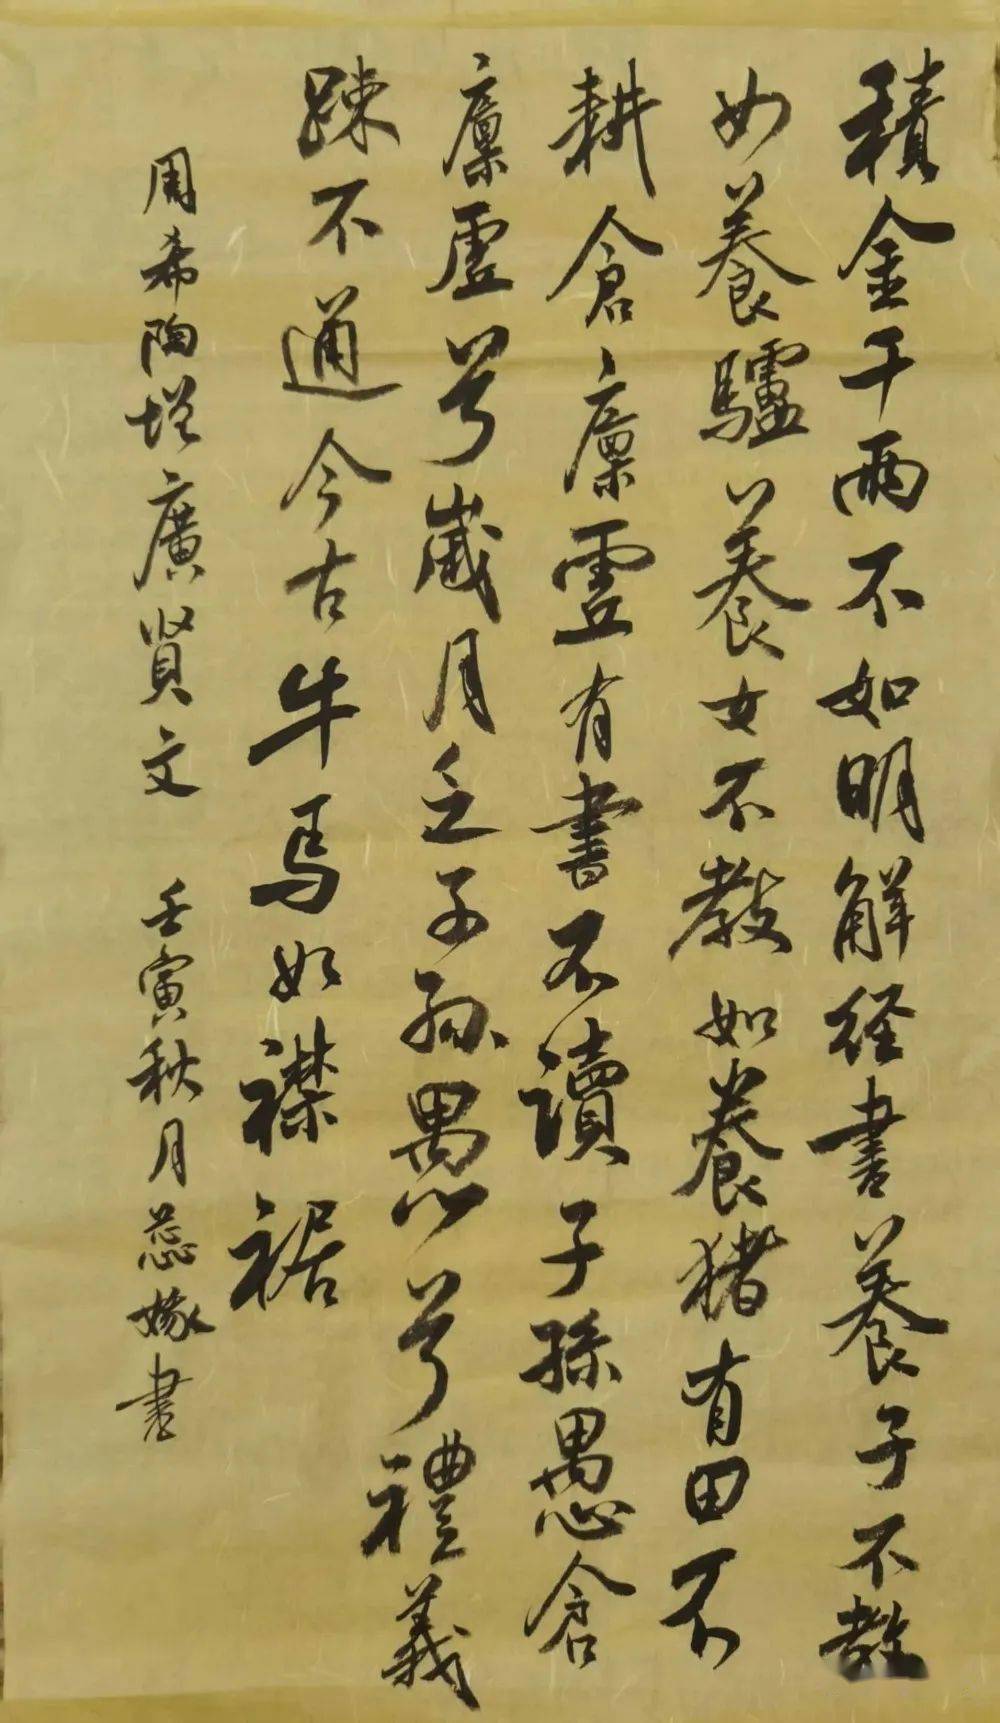 積金千兩不如明解经書養子不教
如養驢養女不教如養猪有田不
耕倉廪虚有書不讀子孫愚倉
廪虚兮歲月乏子孫愚兮禮義
踈不通今古牛馬如襟裾
周希陶增廣賢文 壬寅秋月蕊嫁書